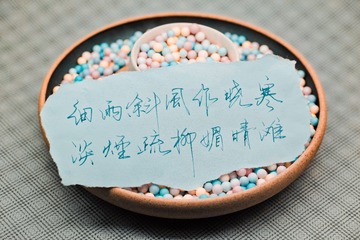 细雨斜風作晓寒
淡煙疏柳媚晴滩